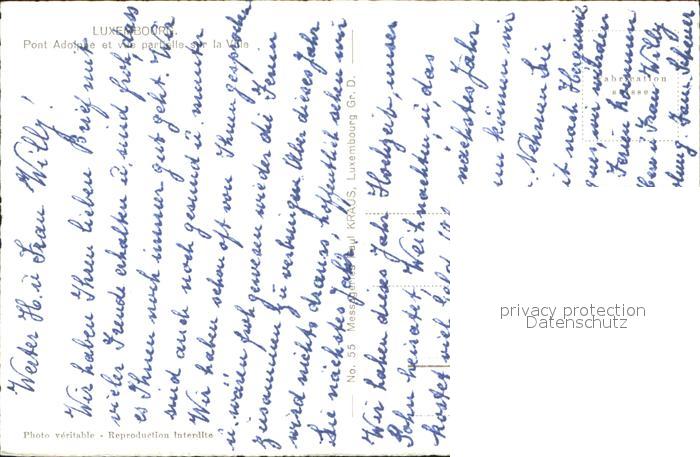 LUXEMBOURG.
Pont Adolphe et vue partielle sur la Ville
Werter H. u Frau Willy!
Wir haben Ihren lieben Brief mit
vieler Freude erhalten u. sind froh, dass
es Ihnen noch immer gut geht. Wir
sind auch noch gesund u. munter
Wir haben schon oft von Ihnen gesprochen
u. wären froh gewesen wieder die Ferien
zusammen zu verbringen Aber dieses Jahr
wird nichts draus, hoffentlich sehen wir
Sie nächstes Jahr.
No. 55 Messageries Paul KRAUS, Luxembourg Gr. D.
Wir haben dieses Jahr Hochzeit, unser
Sohn heiratet, Weihnachten, u, das
kostet viel Geld
nächstes Jahr
können wir
Nehmen Sie
mit nach
wir wieder
Ferien kommen
Herr u Frau Willy
Frau
Fabrication
suisse
Photo véritable - Reproduction Interdite
privacy protection
Datenschutz